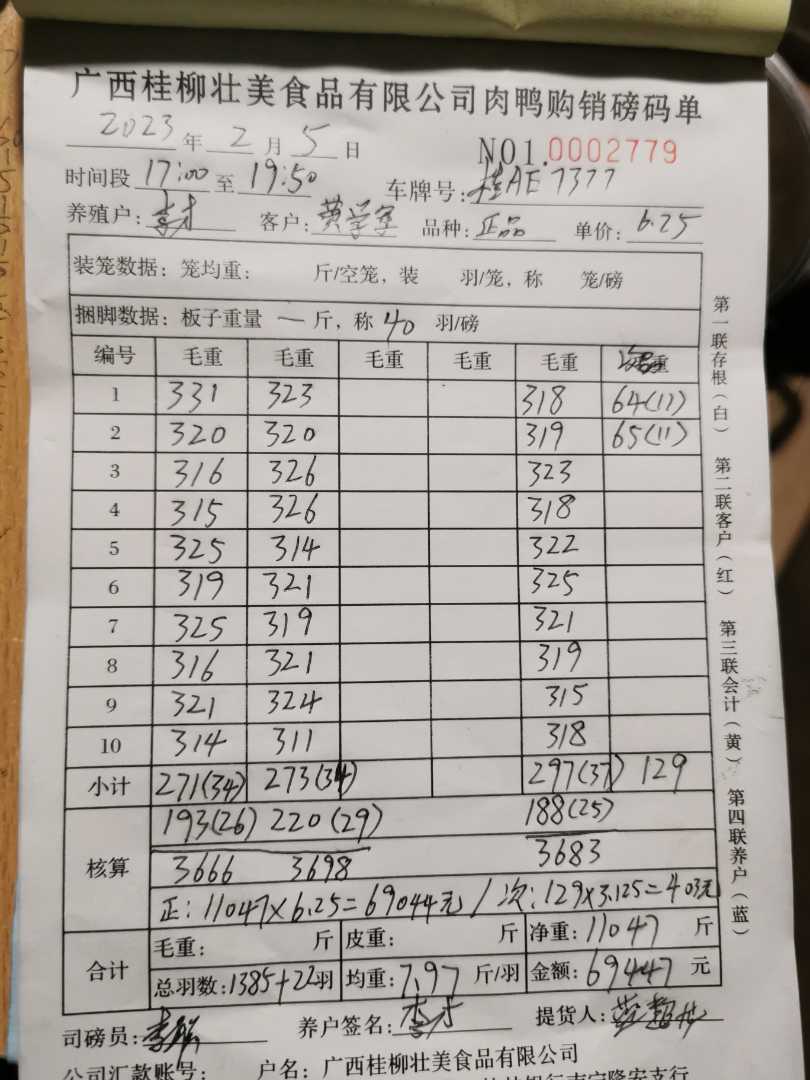 广西桂柳壮美食品有限公司肉鸭购销磅码单
2023 年 2 月 5 日 NO1.0002779
时间段 17:00 至 19:50 车牌号: 桂AE7377
养殖户: 李才 客户: 黄学军 品种: 正品 单价: 6.25
装笼数据: 笼均重: 斤/空笼, 装 羽/笼, 称 笼/磅
捆脚数据: 板子重量 一 斤, 称 40 羽/磅
编号 毛重 毛重 毛重 毛重 毛重 重
1 331 323 318 64(11)
2 320 320 319 65(11)
3 316 326 323
4 315 326 318
5 325 314 322
6 319 321 325
7 325 319 321
8 316 321 319
9 321 324 315
10 314 311 318
小计 271(34) 273(34) 297(37) 129
193(26) 220(29) 188(25)
核算 3666 3698 3683
正: 11047×6.25=69044元 / 次: 129×3.125=403元
合计 毛重: 斤 皮重: 斤 净重: 11047 斤
总羽数: 1385+22羽 均重: 7.97 斤/羽 金额: 69447 元
司磅员: 养户签名: 李才 提货人:
公司汇款账号: 户名: 广西桂柳壮美食品有限公司
第一联存根(白) 第二联客户(红) 第三联会计(黄) 第四联养户(蓝)